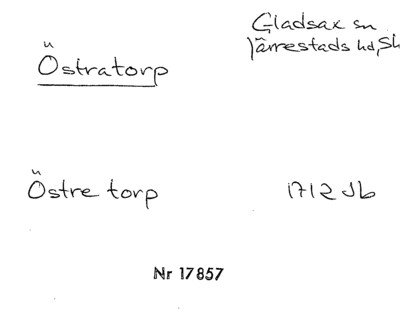 Gladsax sn
Järrestads hd, Sk
Östratorp
Östre torp 1712 Jb
Nr 17857